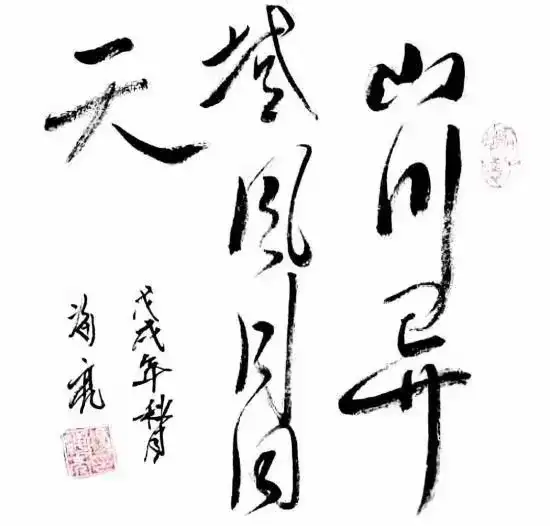 山川异
域风月同
天
戊戌年秋月
亮